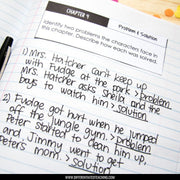 CHAPTER 4
Problem & Solution
Identify two problems the characters face in
this chapter. Describe how each was solved.
1) Mrs. Hatcher can't keep up
with Fudge at the park > problem
Mrs. Hatcher asks Sheila and the
boys to watch him > solution
2) Fudge got hurt when he jumped
off the jungle gym. > problem
Peter started to clean him up,
and Jimmy went to get
Peter's mom. > solution
WWW.DIFFERENTIATEDTEACHING.COM